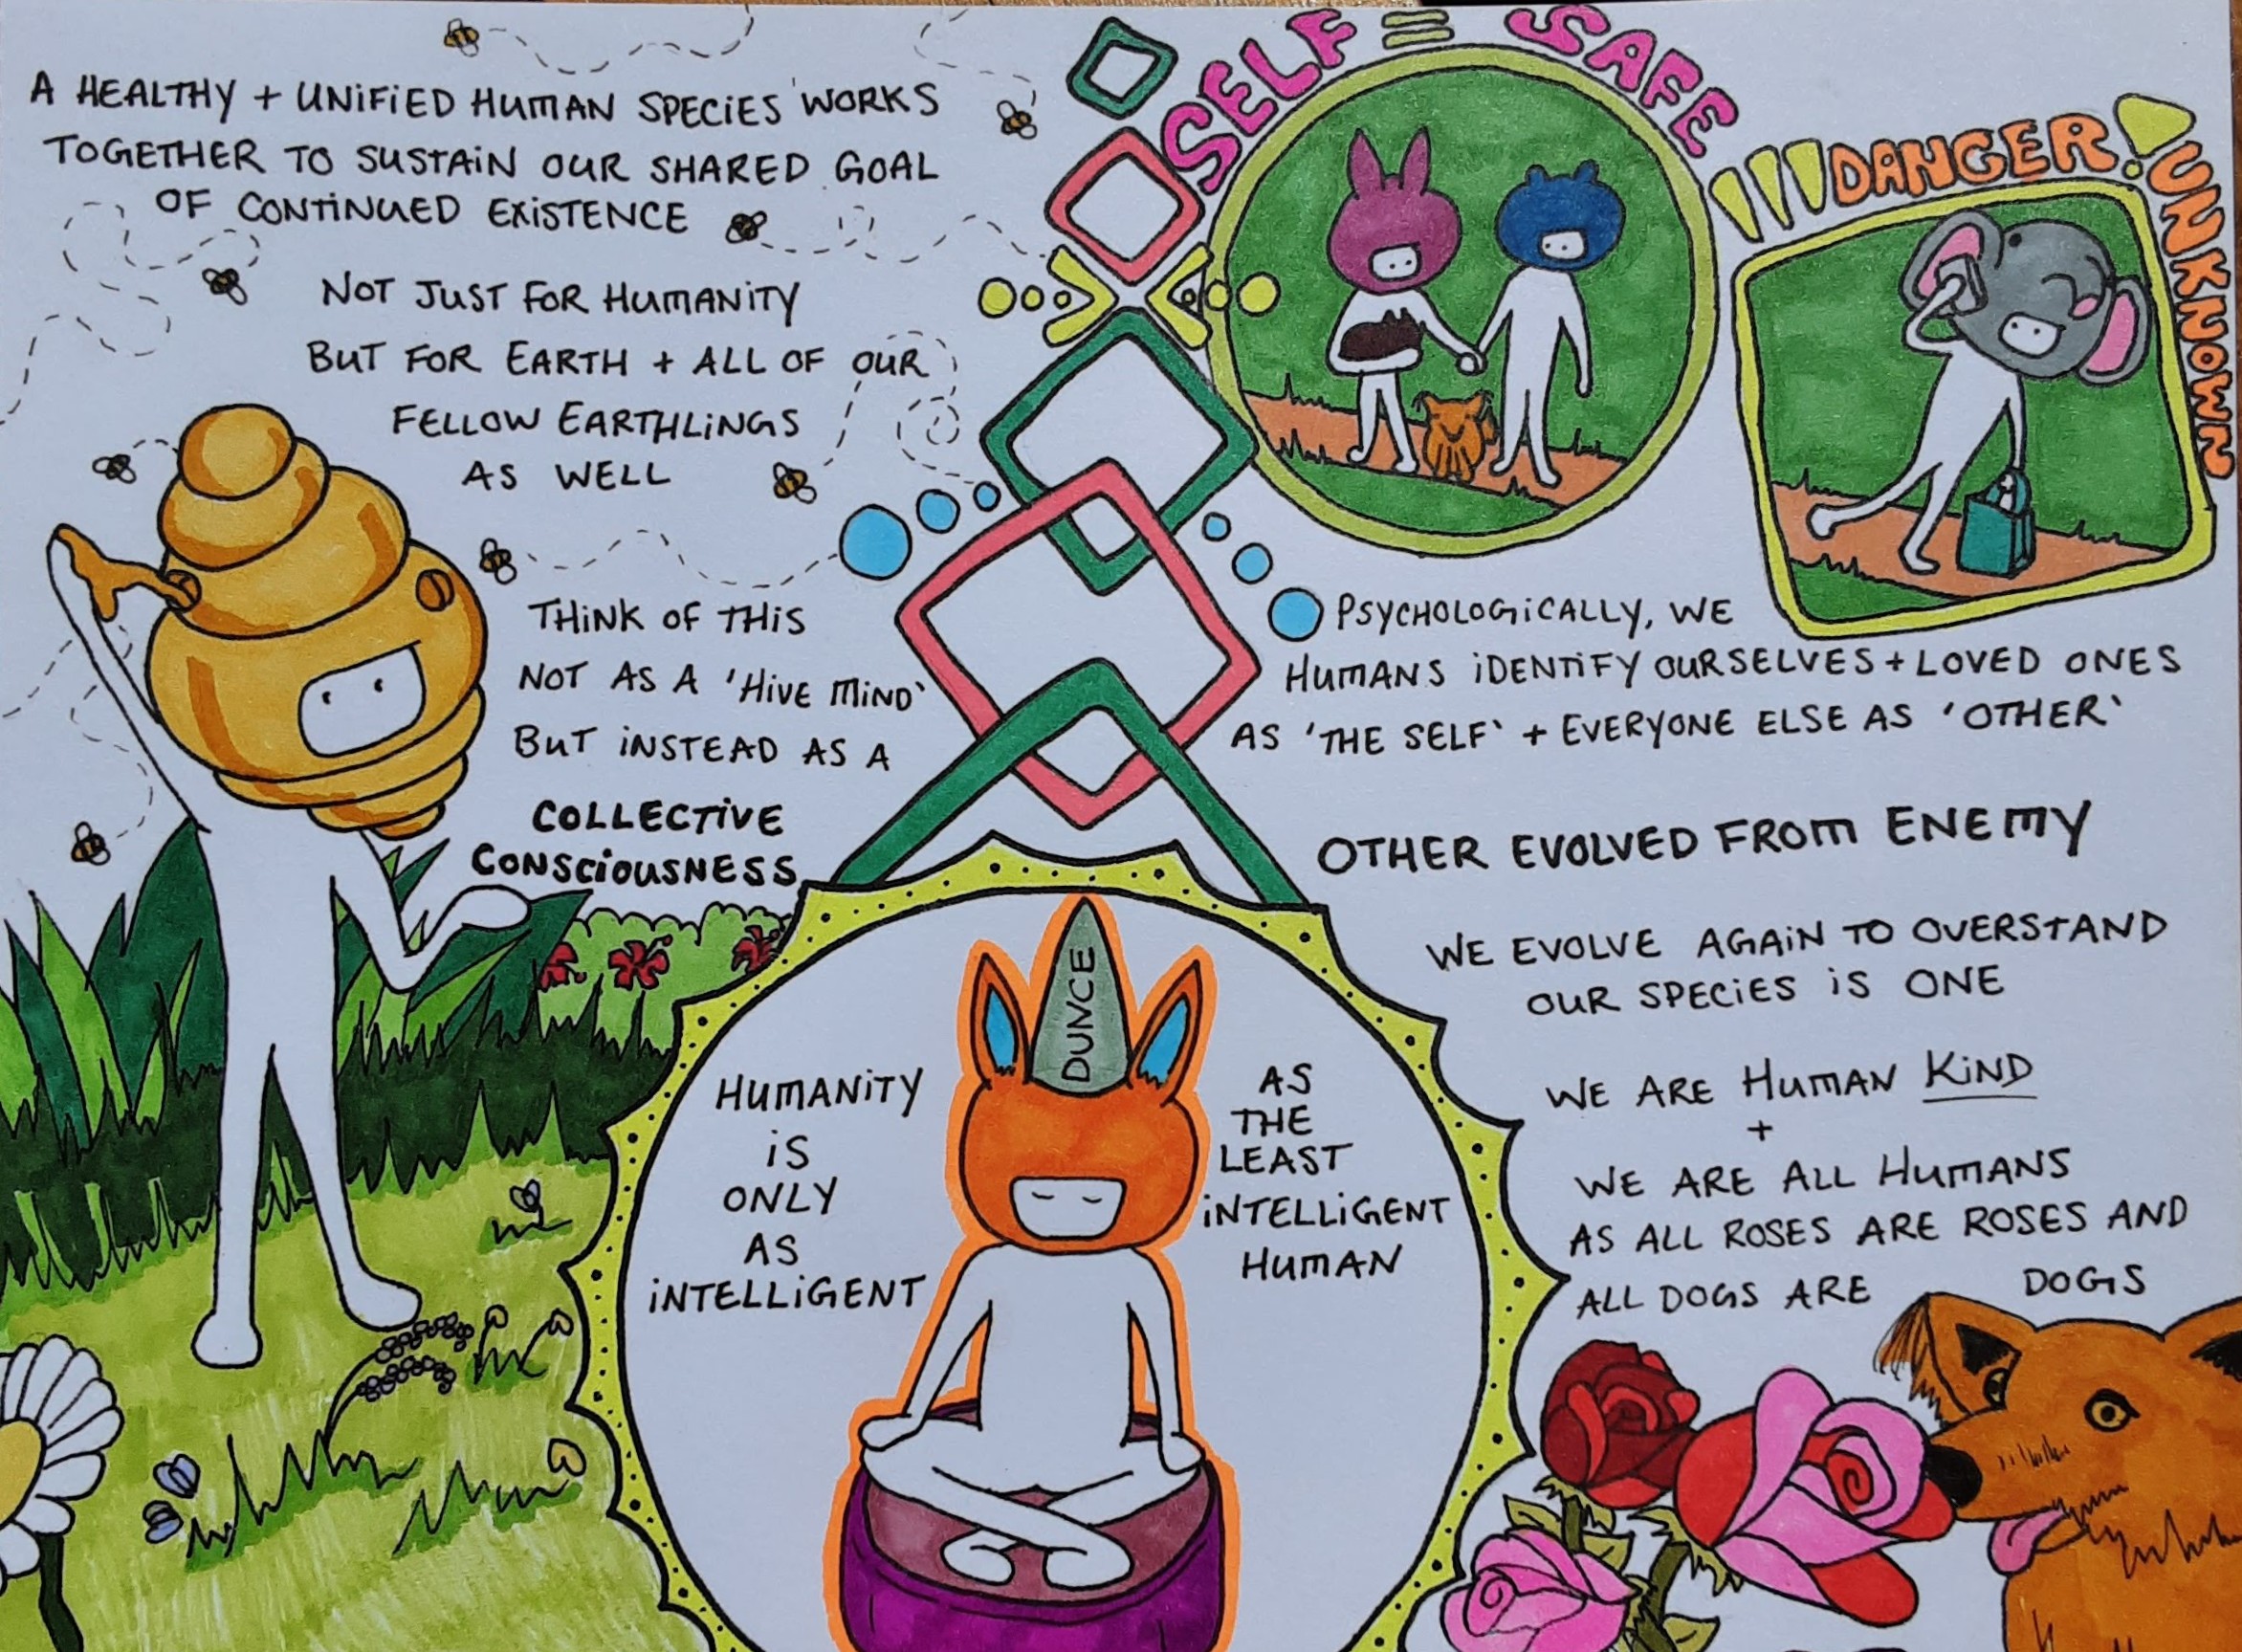 A HEALTHY + UNIFIED HUMAN SPECIES WORKS
TOGETHER TO SUSTAIN OUR SHARED GOAL
OF CONTINUED EXISTENCE
NOT JUST FOR HUMANITY
BUT FOR EARTH + ALL OF OUR
FELLOW EARTHLINGS
AS WELL
THINK OF THIS
NOT AS A 'HIVE MIND'
BUT INSTEAD AS A
COLLECTIVE
CONSCIOUSNESS
SELF = SAFE
!!! DANGER!
UNKNOWN
PSYCHOLOGICALLY, WE
HUMANS IDENTIFY OURSELVES + LOVED ONES
AS 'THE SELF' + EVERYONE ELSE AS 'OTHER'
OTHER EVOLVED FROM ENEMY
WE EVOLVE AGAIN TO OVERSTAND
OUR SPECIES IS ONE
WE ARE HUMAN KIND
+
WE ARE ALL HUMANS
AS ALL ROSES ARE ROSES AND
ALL DOGS ARE DOGS
DUNCE
HUMANITY
IS
ONLY
AS
INTELLIGENT
AS
THE
LEAST
INTELLIGENT
HUMAN